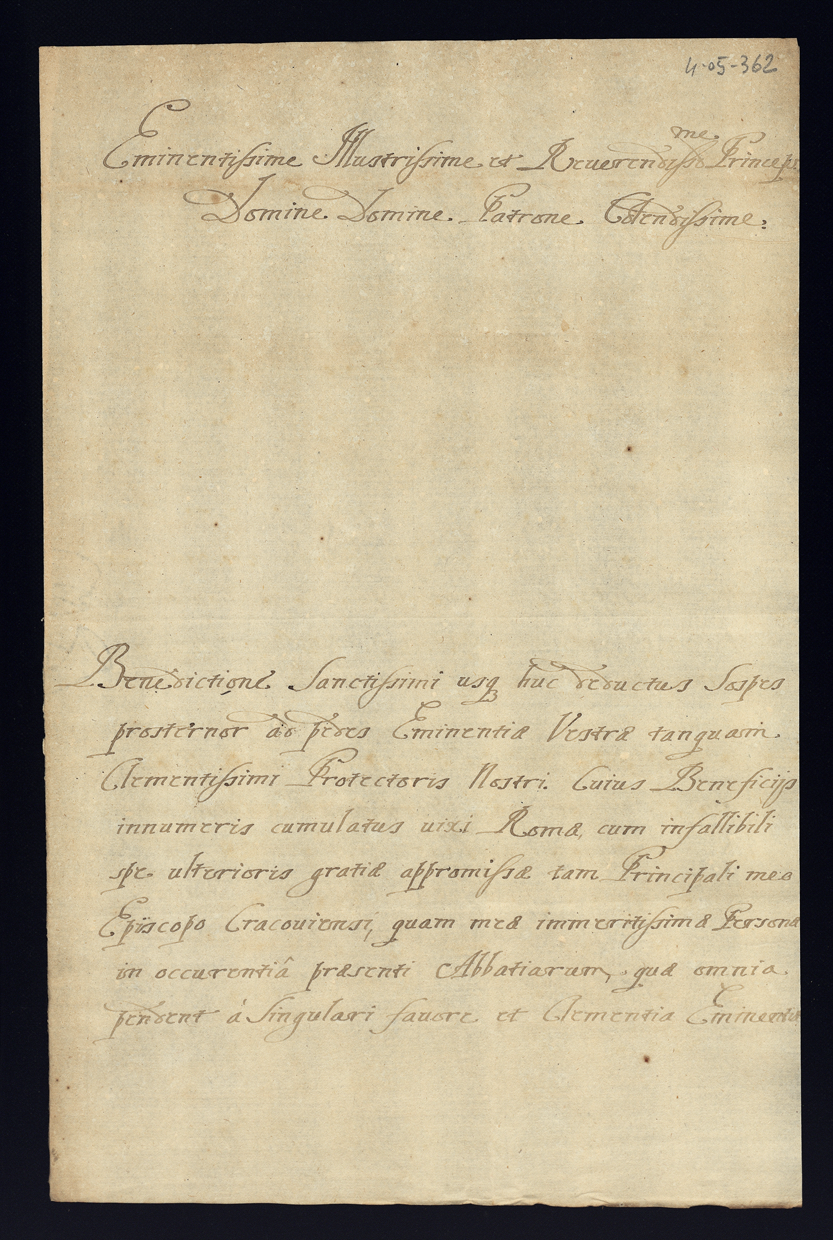 4-05-362
Eminentissime Illustrissime et Reuerendiss̄me Princeps
Domine Domine Patrone Colendissime.
Benedictione Sanctissimi usq huc deductus Sospes
prosternor ad pedes Eminentiæ Vestræ tanquam
Clementissimi Protectoris Nostri. Cuius Beneficijs
innumeris cumulatus uixi Romæ, cum infallibili
spe ulterioris gratiæ appromissæ tam Principali meo
Episcopo Cracouiensi, quam meæ immeritissimæ Personæ
in occurentiâ præsenti Abbatiarum, quæ omnia
pendent á Singulari fauore et Clementia Eminentiæ